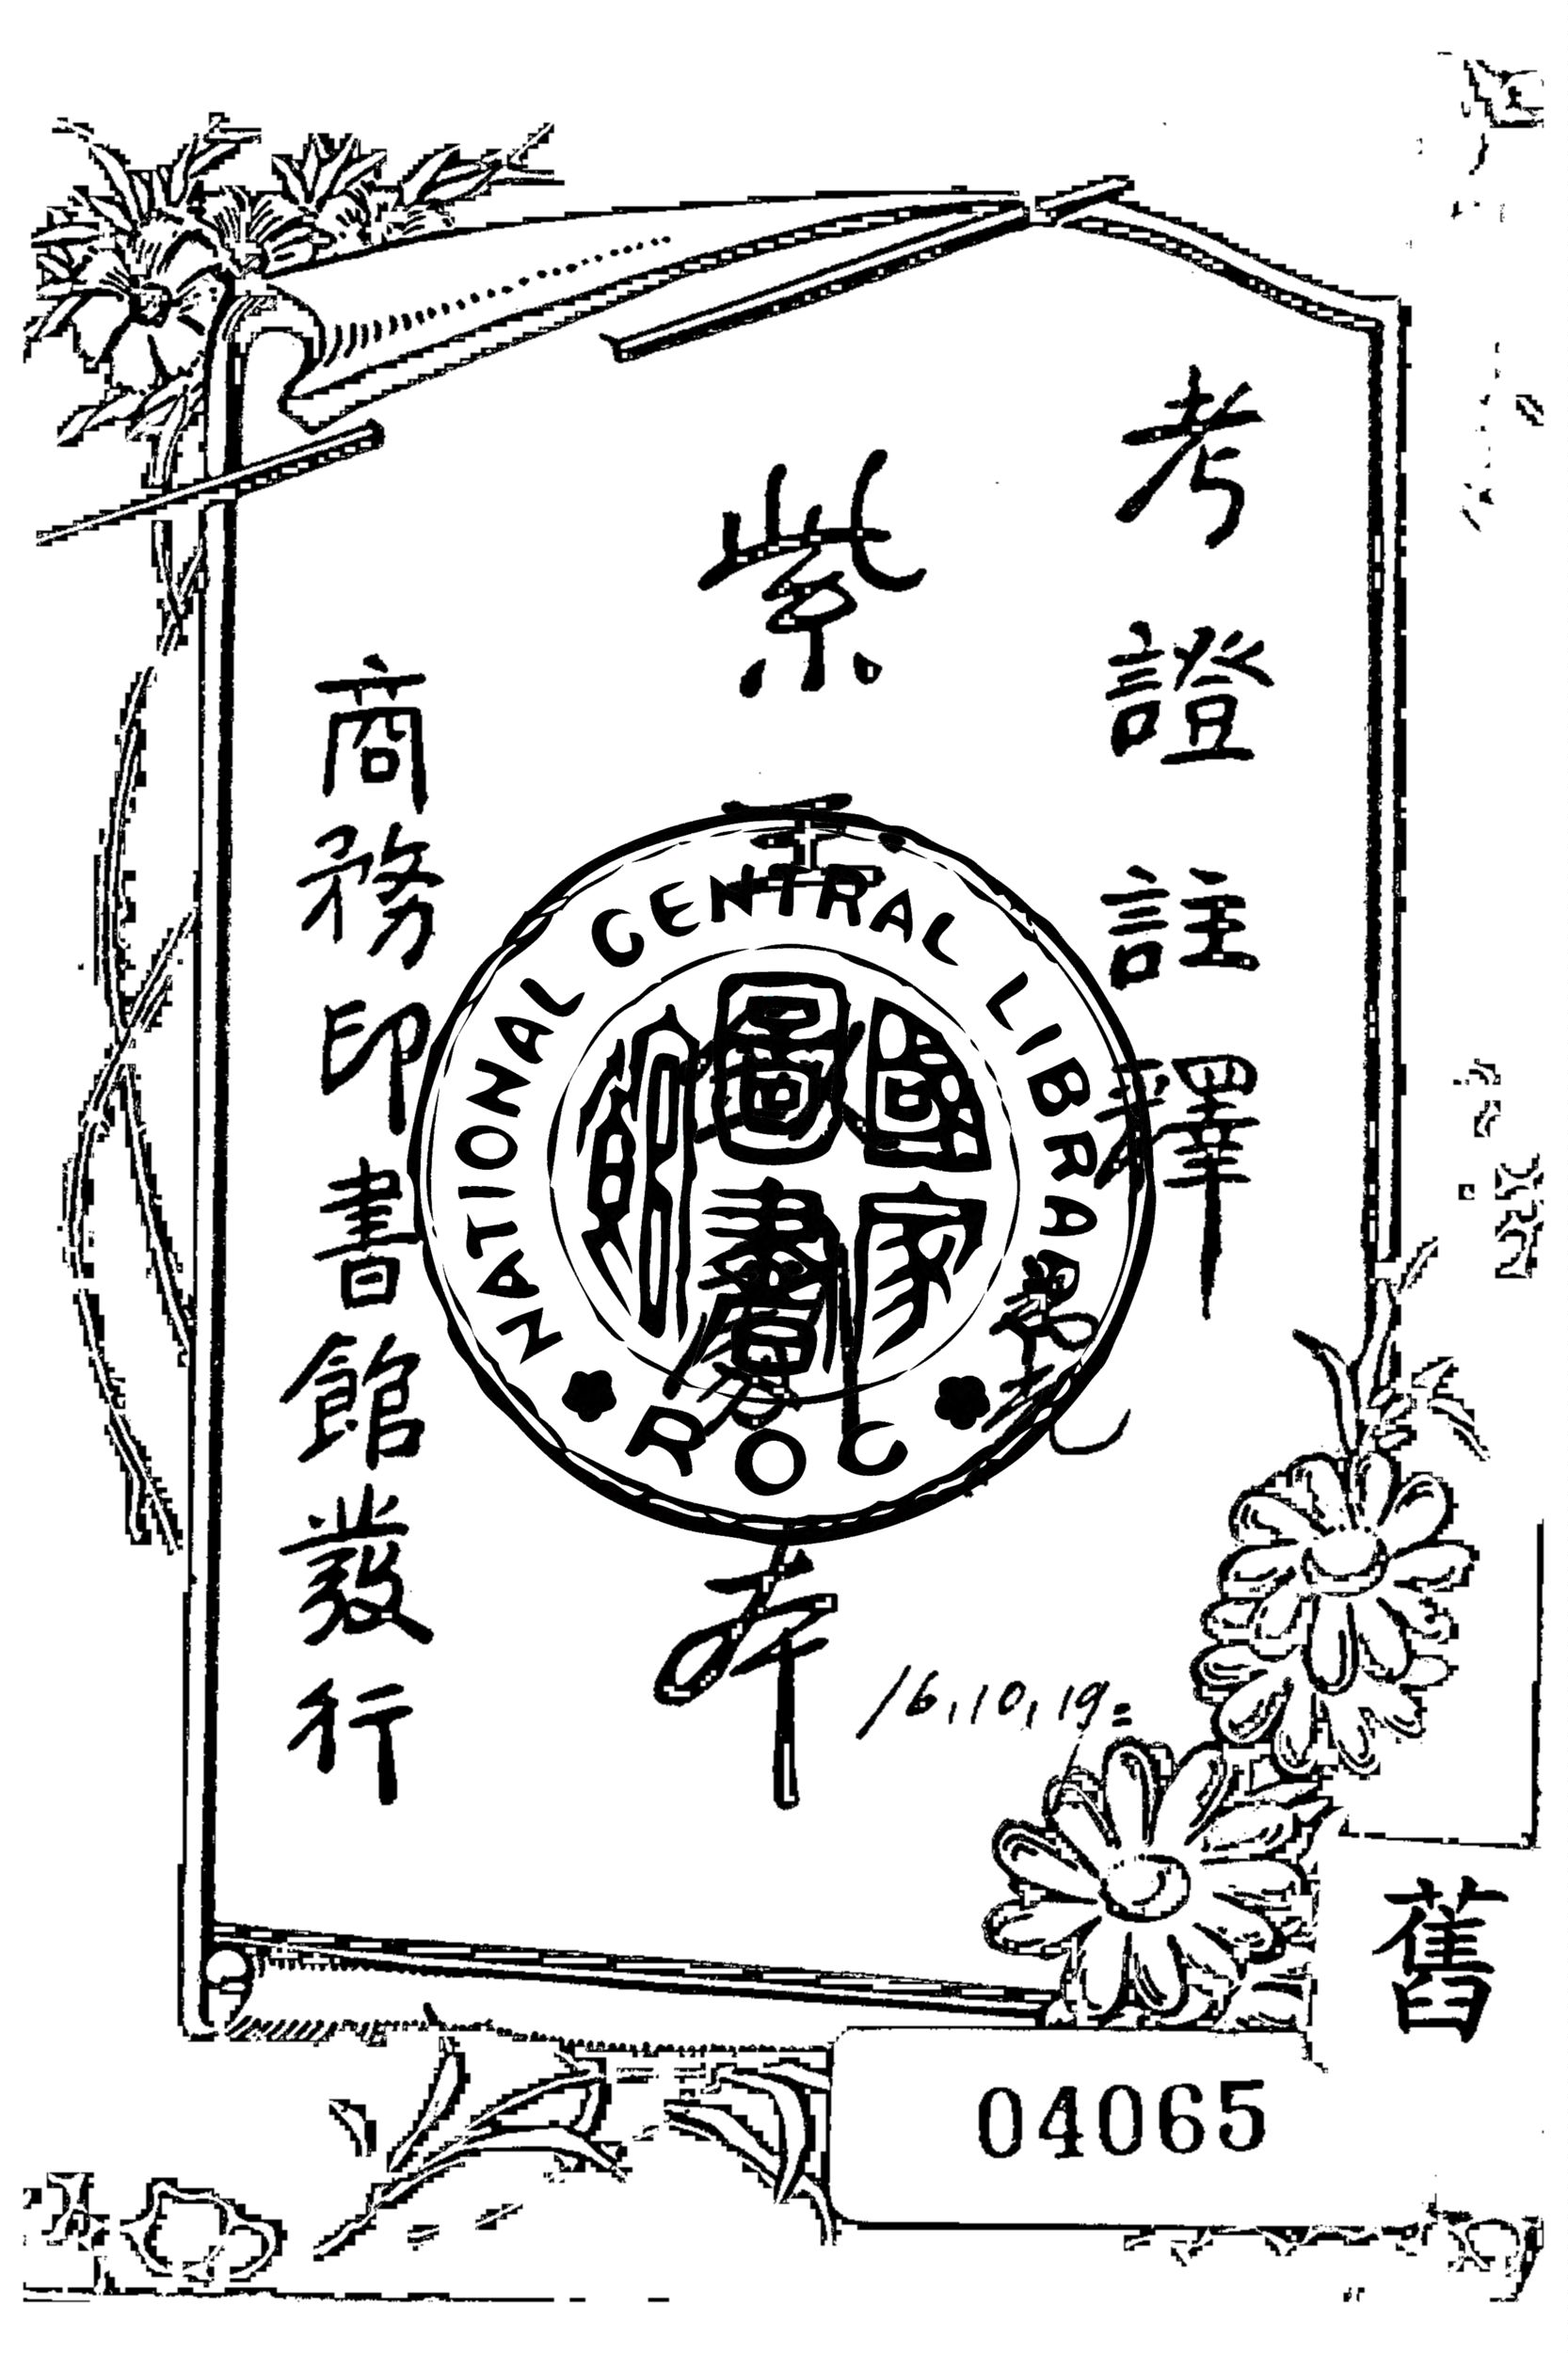 考證註釋
紫
劇本
商務印書館發行
NATIONAL CENTRAL LIBRARY
ROC
國家
圖書
館
16,10,19
舊
04065